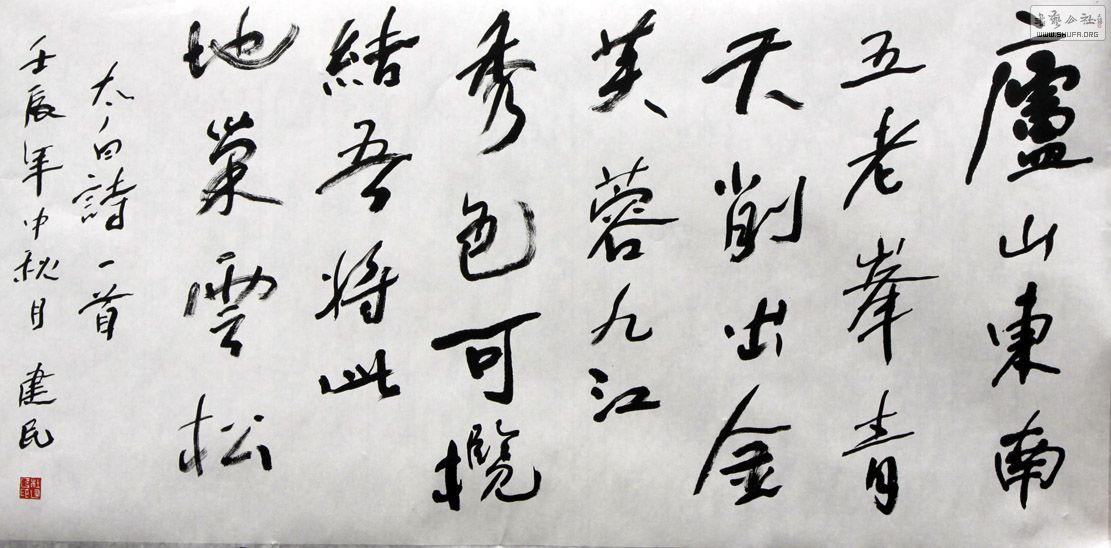 廬山東南
五老峯青
天削出金
芙蓉九江
秀色可攬
結吾將此
地巢雲松
太白詩一首
壬辰年中秋月 建民
WWW.SHUFA.ORG